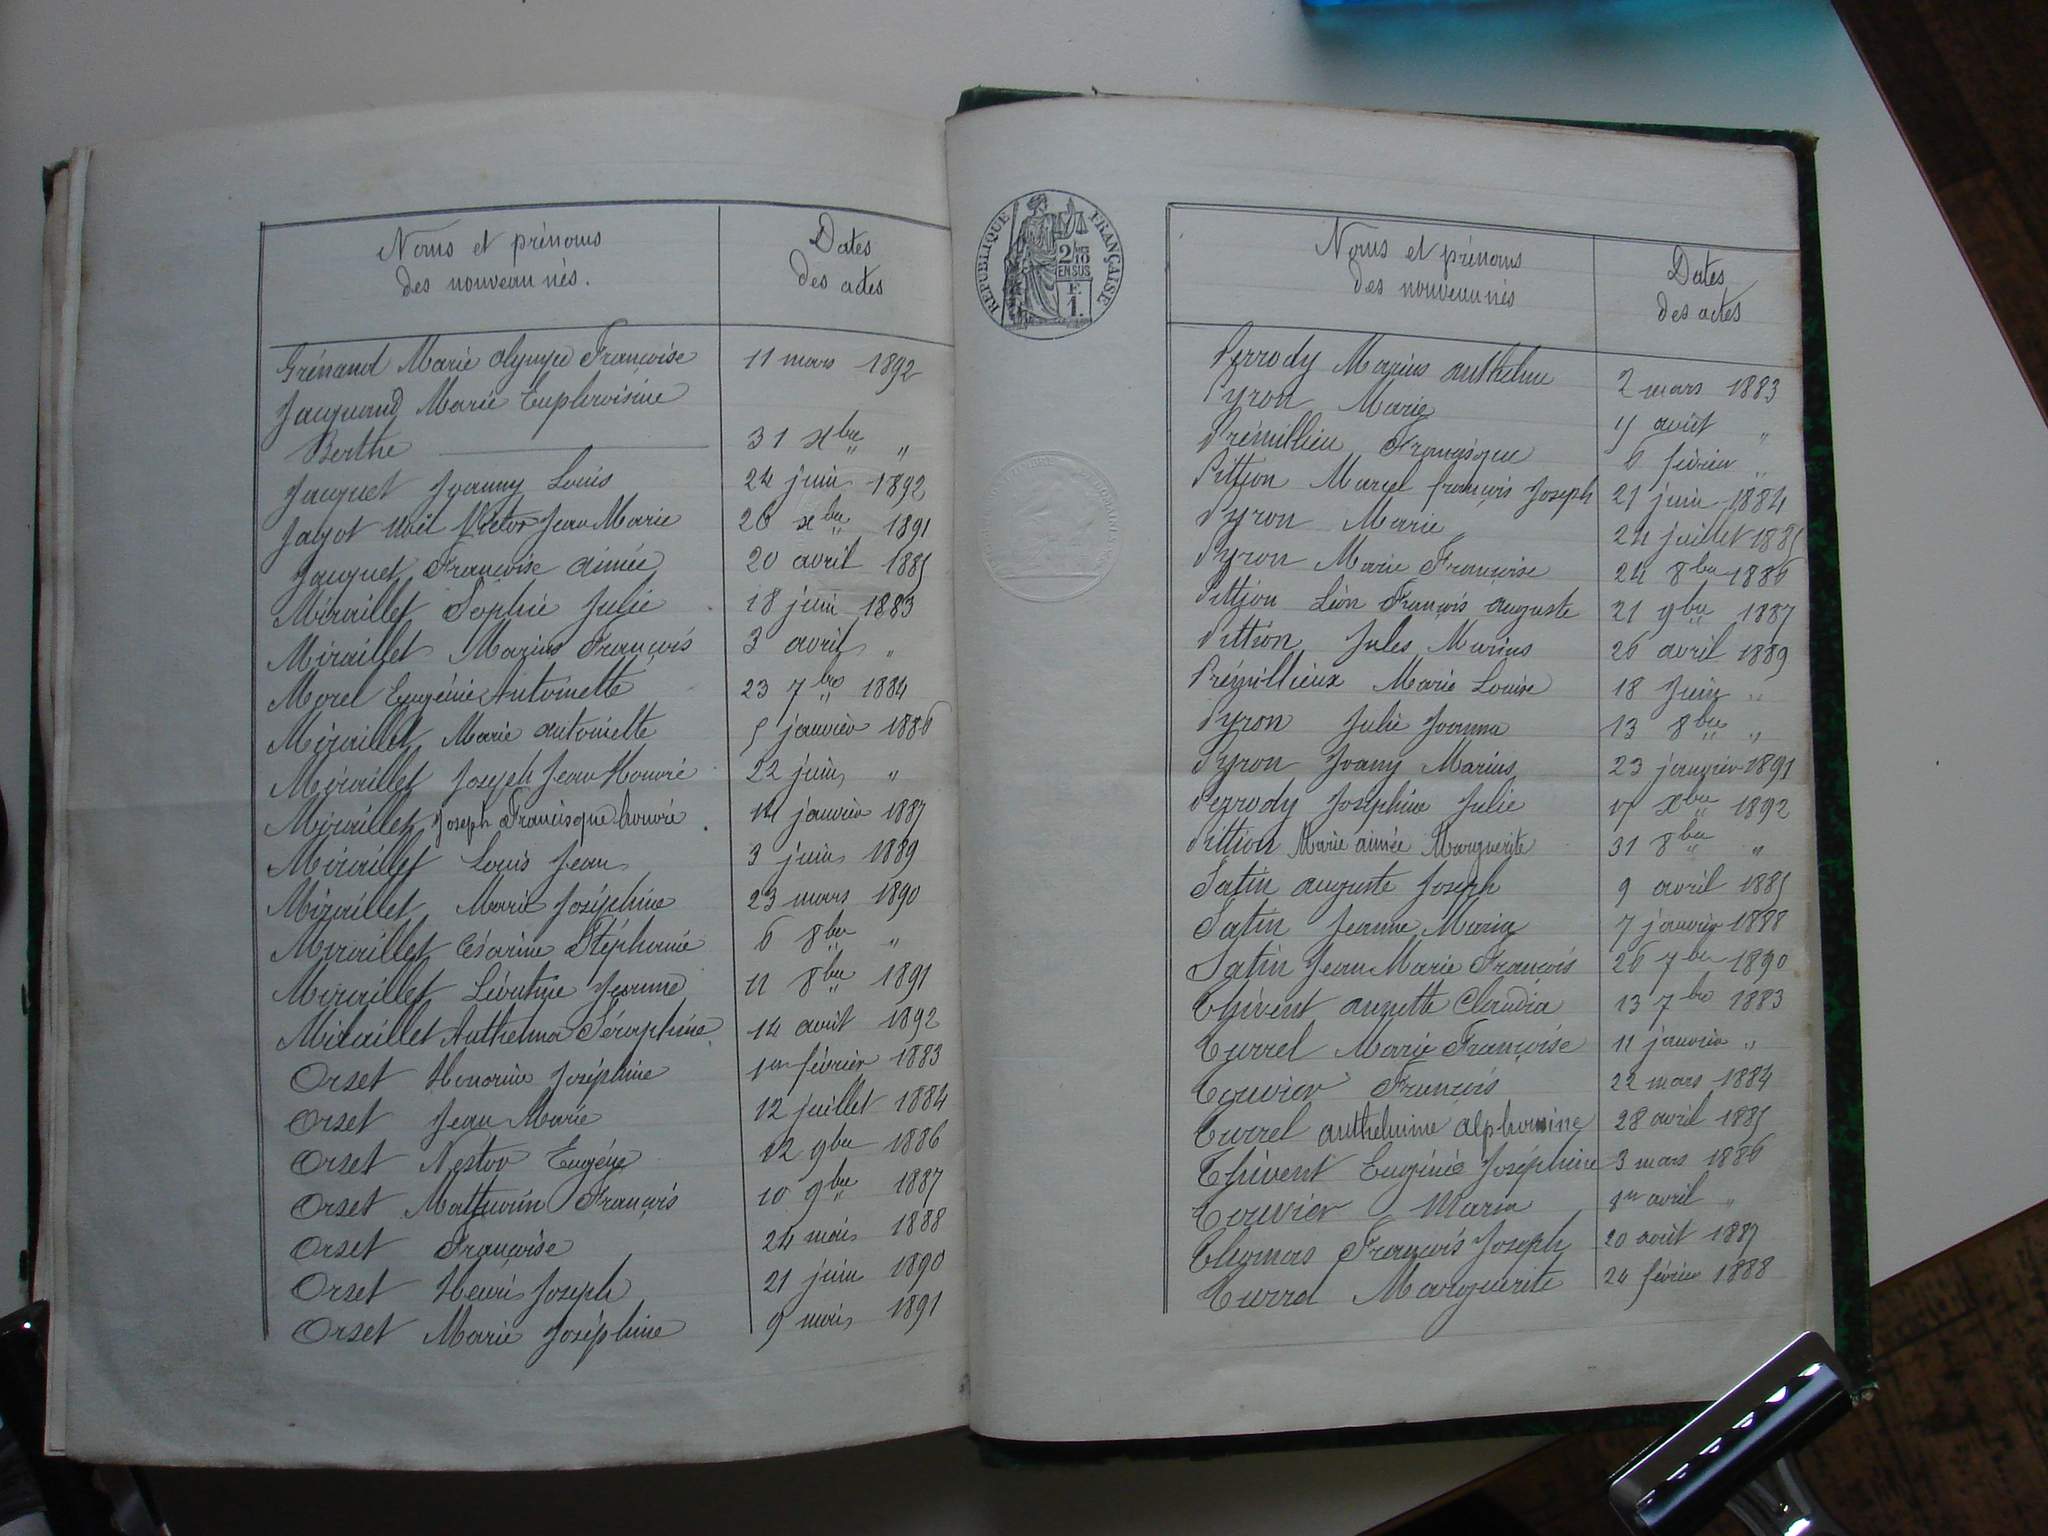 Noms et prénoms
des nouveau nés.
Dates
des actes
Grénand Marie Olympe Françoise 11 mars 1892
Jacquand Marie Euphroisine
Berthe 31 xbre "
Jacquet Joanny Louis 24 juin 1892
Jayot Noël Victor Jean Marie 26 xbre 1891
Jacquet Françoise aimée 20 avril 1885
Miraillet Sophie Julie 18 juin 1883
Miraillet Marius François 3 avril "
Morel Eugénie Antoinette 23 7bre 1884
Miraillet Marie antoinette 5 janvier 1886
Miraillet Joseph Jean Honoré 22 juin "
Miraillet Joseph Francisque honoré 14 janvier 1887
Miraillet Louis Jean 3 juin 1889
Miraillet Marie Joséphine 23 mars 1890
Miraillet Césarine Stéphanie 6 8bre "
Miraillet Léontine Jeanne 11 8bre 1891
Miraillet Anthelma Séraphine 14 août 1892
Orset Honorine Joséphine 1er février 1883
Orset Jean Marie 12 juillet 1884
Orset Nestor Eugène 12 9bre 1886
Orset Mathurin François 10 9bre 1887
Orset Françoise 24 mai 1888
Orset Henri Joseph 21 juin 1890
Orset Marie Joséphine 9 mai 1891
RÉPUBLIQUE FRANÇAISE
2/10
EN SUS
F.
1.
Noms et prénoms
des nouveau nés
Dates
des actes
Perrody Marius anthelme 2 mars 1883
Pyron Marie août "
Prémillieu Francisque 6 février "
Pittion Marcel françois Joseph 21 juin 1884
Pyron Marie 24 juillet 1885
Pyron Marie Françoise 24 8bre 1886
Pittion Léon François auguste 21 9bre 1887
Pittion Jules Marius 26 avril 1889
Prémillieux Marie Louise 18 Juin "
Pyron Julie Joanna 13 8bre "
Pyron Joany Marius 23 janvier 1891
Perrody Joséphine Julie xbre 1892
Pittion Marie aimée Marguerite 31 8bre "
Satin auguste Joseph 9 avril 1885
Satin Jeanne Maria 7 janvier 1888
Satin Jean Marie François 26 7bre 1890
Thévent annette Claudia 13 7bre 1883
Turrel Marie Françoise 11 janvier "
Touvier François 22 mars 1884
Turrel anthelmine alphonsine 28 avril 1885
Thévent Eugénie Joséphine 3 mars 1886
Touvier Maria 1er avril "
Thomas François Joseph 20 août 1887
Turrel Marguerite 24 février 1888